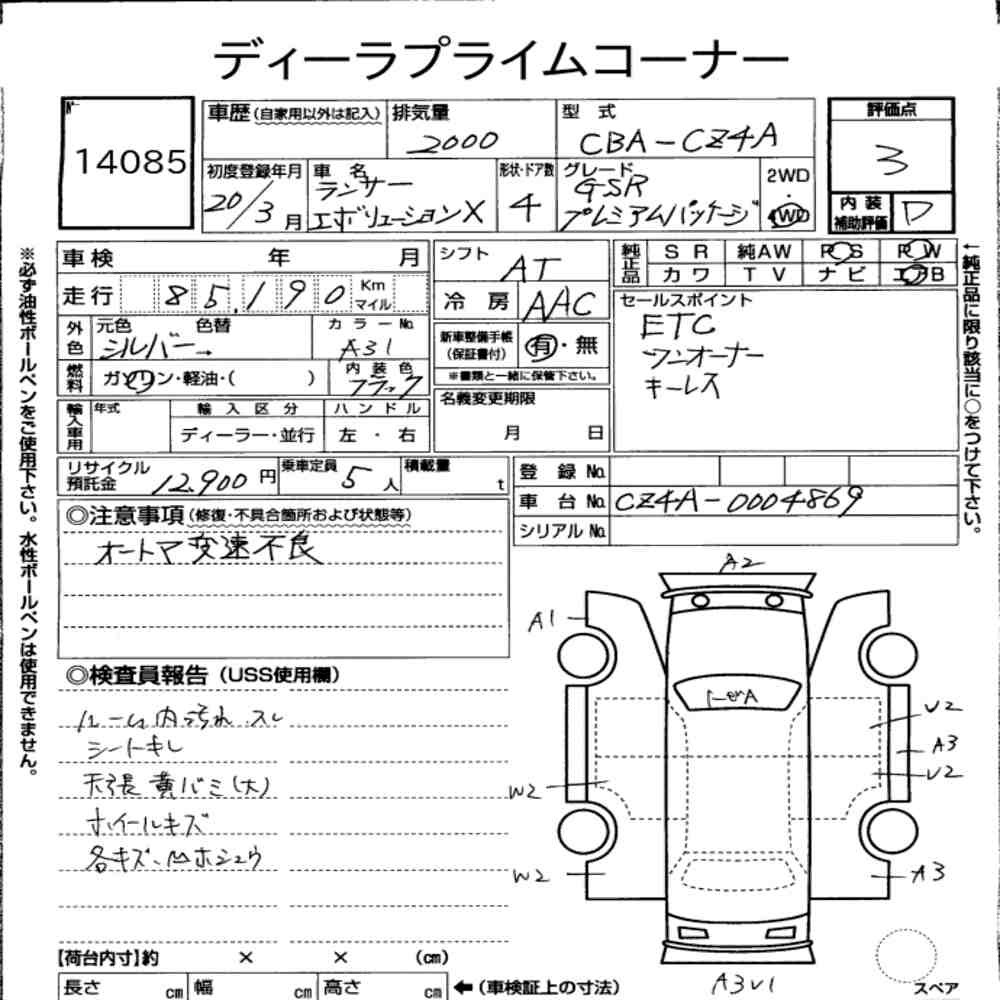 ディーラプライムコーナー
No
14085
車歴 (自家用以外は記入)
排気量
2000
型 式
CBA-CZ4A
評価点
3
初度登録年月
20/3月
車 名
ランサー
エボリューションX
形状・ドア数
4
グレード
GSR
プレミアムパッケージ
2WD
・
4WD
内 装
補助評価
D
車検 年 月
シフト
AT
純正品
S R 純AW P・S P・W
カワ T V ナビ エアB
走行 85,190 Km
マイル
冷 房
AAC
セールスポイント
ETC
ワンオーナー
キーレス
外色
元色 色替
シルバー→
カラーNo.
A31
新車整備手帳
(保証書付)
有・無
※書類と一緒に保管下さい。
燃料
ガソリン・軽油・( )
内 装 色
ブラック
名義変更期限
月 日
輸入車用
年式
輸 入 区 分
ハ ン ド ル
ディーラー・並行
左 ・ 右
リサイクル
預託金
12,900 円
乗車定員
5 人
積載量
t
登 録 No.
車 台 No. CZ4A-0004869
シリアル No.
◎注意事項 (修復・不具合箇所および状態等)
オートマ変速不良
◎検査員報告 (USS使用欄)
ルーム内汚れ.スレ
シートキレ
天張黄バミ(大)
ホイールキズ
各キズ、凹ホシュウ
A2
A1
U2
A3
U2
W2
W2
A3
A3U1
スペア
【荷台内寸】約 × × (cm)
長さ cm 幅 cm 高さ cm ←(車検証上の寸法)
※必ず油性ボールペンをご使用下さい。水性ボールペンは使用できません。
←純正品に限り該当に○をつけて下さい。